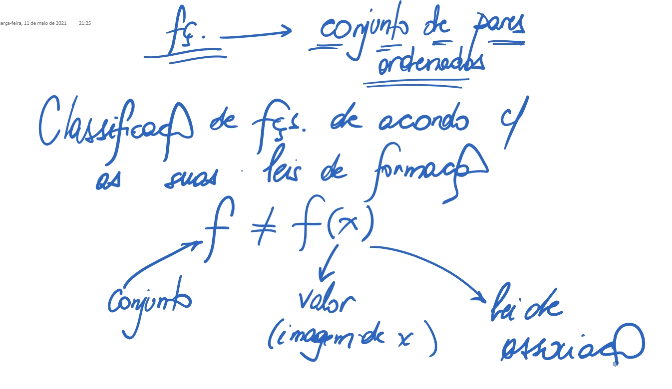 terça-feira, 11 de maio de 2021 21:25
fç. → conjunto de pares
ordenados
Classificação de fçs. de acordo c/
as suas leis de formação
f ≠ f(x)
Conjunto
valor
(imagem de x)
lei de
associação